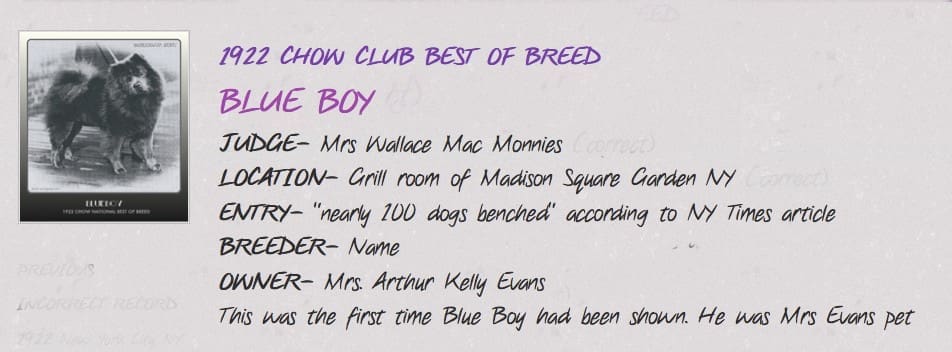 1922 CHOW CLUB BEST OF BREED
BLUE BOY
JUDGE- Mrs Wallace Mac Monnies (correct)
LOCATION- Grill room of Madison Square Garden NY (correct)
ENTRY- "nearly 200 dogs benched" according to NY Times article
BREEDER- Name
OWNER- Mrs. Arthur Kelly Evans
This was the first time Blue Boy had been shown. He was Mrs Evans pet
BLUEBOY
1922 CHOW NATIONAL BEST OF BREED
PREVIOUS
INCORRECT RECORD
1922 New York City NY